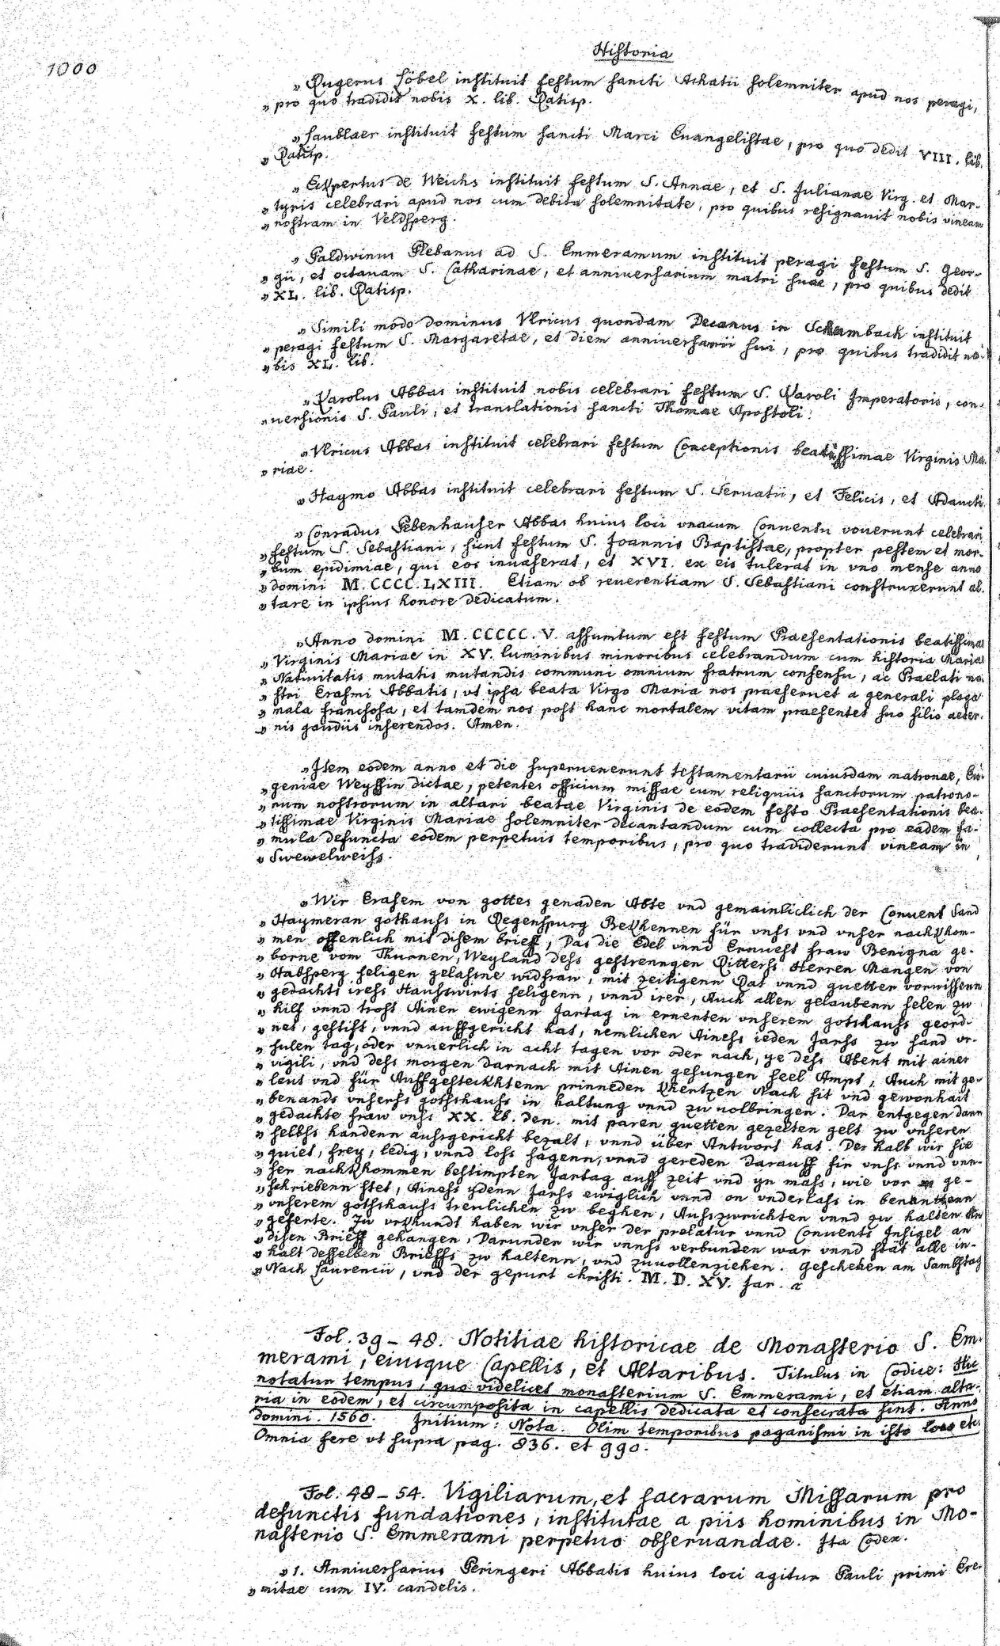 1000
Historia
„ Rugerus Löbel instituit festum sancti Achatii solemniter apud nos peragi,
„ pro quo tradidit nobis X. lib. Ratisp.
„ instituit festum sancti Marci Euangelistae, pro quo dedit VIII. lib.
„ Ratisp.
„ de Weichs instituit festum S. Annae, et S. Julianae Virg. et Mar-
„ tyris celebrari apud nos cum debita solemnitate, pro quibus resignauit nobis vineam
„ nostram in Veldsperg.
„ Paldwinus Plebanus ad S. Emmeramum instituit peragi festum S. Geor-
„ gii, et octauam S. Catharinae, et anniuersarium matri suae, pro quibus dedit
„ XL. lib. Ratisp.
„ Simili modo dominus Vlricus quondam Decanus in instituit
„ peragi festum S. Margaretae, et diem anniuersarii sui, pro quibus tradidit no-
„ bis XL. lib.
„ Karolus Abbas instituit nobis celebrari festum S. Karoli Imperatoris, con-
„ uersionis S. Pauli, et translationis sancti Thomae Apostoli.
„ Vlricus Abbas instituit celebrari festum Conceptionis beatissimae Virginis Ma-
„ riae.
„ Haymo Abbas instituit celebrari festum S. Seruatii, et Felicis, et Adaucti.
„ Conradus Pebenhauser Abbas huius loci vnacum Conuentu vouerunt celebrari
„ festum S. Sebastiani, sicut festum S. Joannis Baptistae, propter pestem et mor-
„ bum epidimiae, qui eos inuaserat, et XVI. ex eis tulerat in vno mense anno
„ domini M.CCCC.LXIII. Etiam ob reuerentiam S. Sebastiani construxerunt al-
„ tare in ipsius honore dedicatum.
„ Anno domini M.CCCCC.V. assumtum est festum Praesentationis beatissimae
„ Virginis Mariae in XV. luminibus minoribus celebrandum cum historia Mariae
„ Natiuitatis mutatis mutandis communi omnium fratrum consensu, ac Praelati no-
„ stri Erasmi Abbatis, vt ipsa beata Virgo Maria nos praeseruet a generali plaga
„ mala franchosa, et tamdem nos post hanc mortalem vitam praesentet suo filio aeter-
„ nis gaudiis inserendos. Amen.
„ Item eodem anno et die superuenerunt testamentarii cuiusdam matronae, Eu-
„ geniae Weyssin dictae, petentes officium missae cum reliquiis sanctorum patrono-
„ rum nostrorum in altari beatae Virginis de eodem festo Praesentationis bea-
„ tissimae Virginis Mariae solemniter decantandum cum collecta pro eadem fa-
„ mula defuncta eodem perpetuis temporibus, pro quo tradiderunt vineam in
„ Swewelweiss.
„ Wir Erasem von gottes genaden Abte vnd gemainlich der Conuent Sand
„ Haymeran gothauss in Regenspurg Bekhennen für vnss vnd vnser nachkhom-
„ men offenlich mit disem brieff, Das die Edel vnnd Ernuest fraw Benigna ge-
„ borne vom Thurnen, Weyland dess gestrenngen Ritterss Herren Mangen von
„ Habsperg seligen gelassne widfraw, mit zeitigenn Rat vnnd guetter vorwissenn
„ gedachts iress Hausswirts seligenn, vnnd irer, Auch allen gelaubenn selen zu
„ hilf vnnd trost Ainen ewigenn Jartag in ernenten vnserem gotshauss geord-
„ net, gestift, vnnd auffgericht hat, nemlichen Ainess ieden Jarss zu sand vr-
„ sulen tag, oder vnuerlich in acht tagen vor oder nach, ye dess Abent mit ainer
„ vigili, vnd dess morgen darnach mit Ainen gesungen seel Ampt, Auch mit ge-
„ leut vnd für Auffgesteckhtenn prinneden Kherzen Nach sit vnd gewonhait
„ benands vnserss gottshauss in haltung vnnd zu volbringen. Dar entgegen dann
„ gedachte fraw vnss XX. lb. den. mit paren guetten gezelten gelt zu vnseren
„ selbss handenn aussgericht bezalt, vnnd über Antwort hat. Des halb wir sie
„ quiet, frey, ledig, vnnd loss sagenn, vnnd gereden darauff für vnss vnnd vnn-
„ ser nachkhommen bestimpten Jartag auff zeit vnd yn mass, wie vor ge-
„ schriebenn stet, Ainess ydenn Jarss ewiglich vnnd on vnderlass in benanntenn
„ vnserem gotshauss treulichen zu beghen, Ausszurichten vnnd zu halten
„ gesente. Zu vrkhundt haben wir vnser der prelatur vnnd Conuents Insigel an
„ disen Brieff gehangen, Darunden wir vnnss verbunden war vnnd stät alle in-
„ halt desselben Brieffs zu haltenn, vnd zuuollenziehen. geschehen am Sambstag
„ Nach Laurencii, vnd der gepurt christi. M.D.XV. Jar.
Fol. 39 – 48. Notitiae historicae de Monasterio S. Em-
merami, eiusque Capellis, et Altaribus. Titulus in Codice: Hic
notatur tempus, quo videlicet monasterium S. Emmerami, et etiam alta-
ria in eodem, et circumposita in capellis dedicata et consecrata sint. Anno
domini. 1560. Initium: Nota. Olim temporibus paganismi in isto loco etc.
Omnia fere vt supra pag. 836. et 990.
Fol. 48 – 54. Vigiliarum, et sacrarum Missarum pro
defunctis fundationes, institutae a piis hominibus in Mo-
nasterio S. Emmerami perpetuo obseruandae. Ita Codex.
„ 1. Anniuersarius Peringeri Abbatis huius loci agitur Pauli primi Ere-
„ mitae cum IV. candelis.